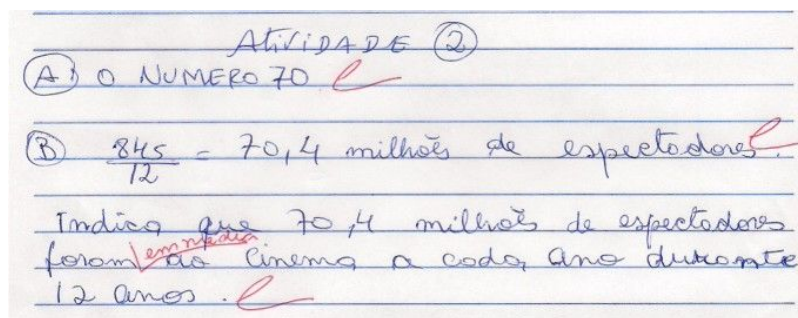 Atividade 2
A) O NUMERO 70
B) 845/12 = 70,4 milhões de espectadores.
Indica que 70,4 milhões de espectadores
em média
foram ao Cinema a cada ano durante
12 anos.